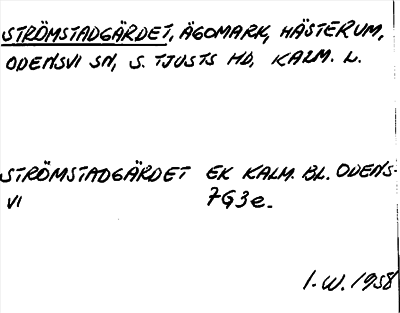 STRÖMSTADGÄRDET, ÄGOMARK, HÄSTERUM,
ODENSVI SN, S. TJUSTS HD, KALM. L.
STRÖMSTADGÄRDET EK KALM. BL. ODENS-
VI 7G3e.
I.W. 1958